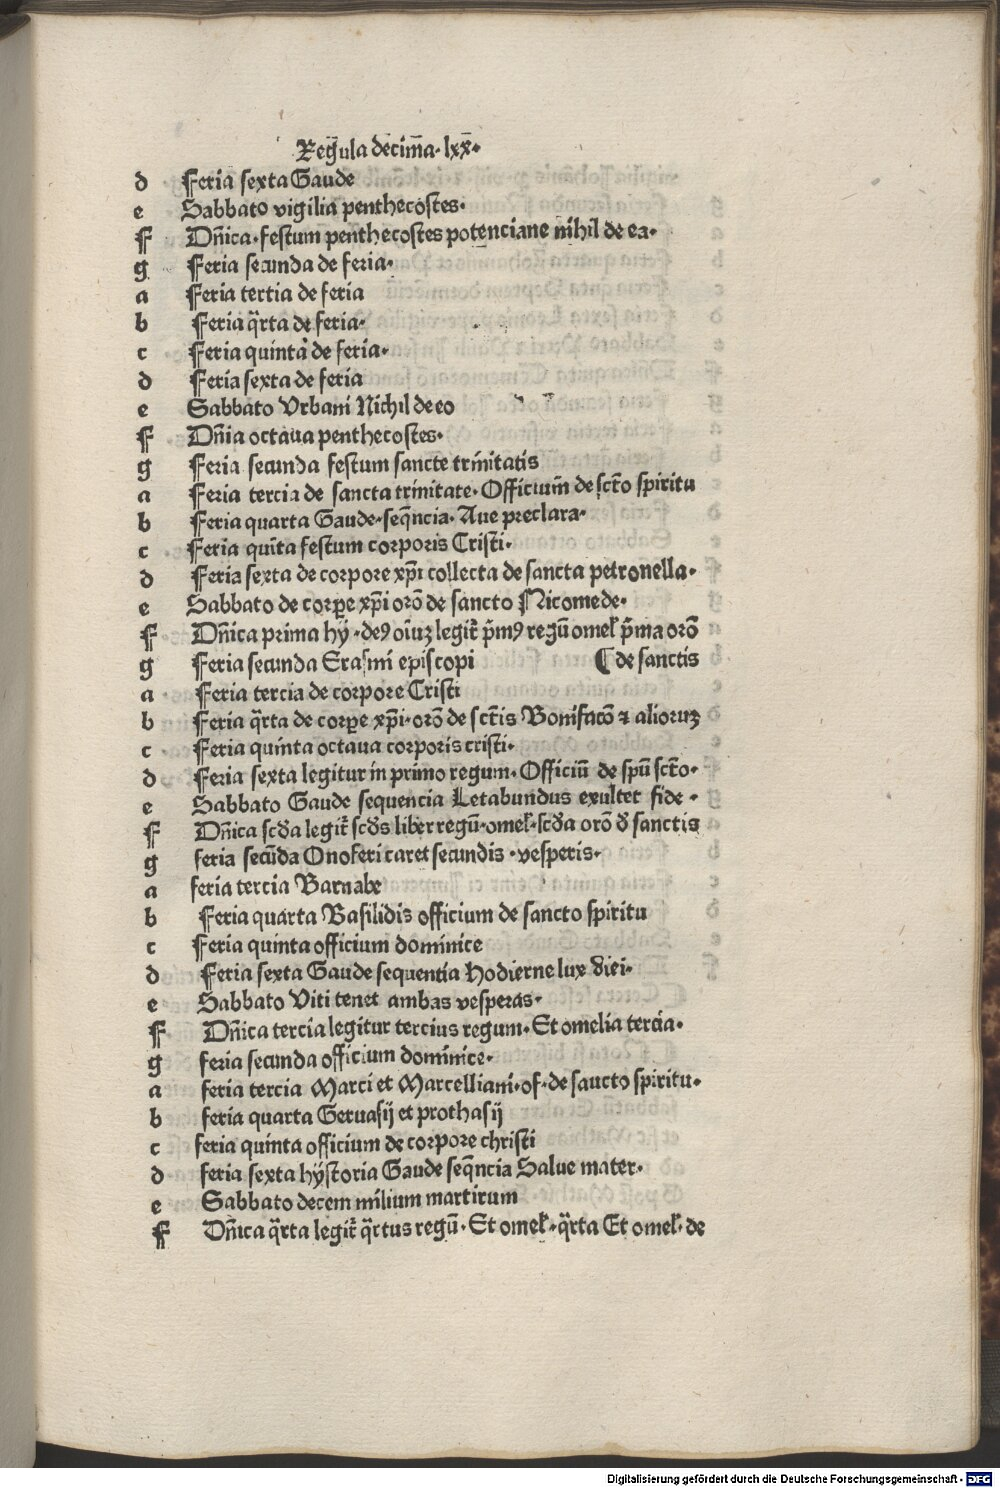 Regula decim̄a· lxx̄·
d Feria sexta Gaude
e Sabbato vigilia penthecostes·
F Dn̄ica· festum penthecostes potenciane nihil de ea·
g Feria secunda de feria·
a Feria tertia de feria
b Feria q̄rta de feria·
c Feria quinta de feria·
d Feria sexta de feria
e Sabbato Vrbani Nichil de eo
F Dn̄ia octaua penthecostes·
g Feria secunda festum sancte trinitatis
a Feria tercia de sancta trinitate· Officium̄ de sct̄o spiritu
b Feria quarta Gaude·seq̄ncia· Aue preclara·
c Feria quīta festum corporis Cristi·
d Feria sexta de corpore xp̄i collecta de sancta petronella·
e Sabbato de corꝑe xp̄i orō de sancto Nicomede·
F Dn̄ica prima hÿ ·deꝯ oīuꝫ legit᷑ p̄mꝯ regū omel̕ p̄ma orō
g Feria secunda Erasmi episcopi ⸿ de sanctis
a Feria tercia de corpore Cristi
b Feria q̄rta de corꝑe xp̄i· orō de sct̄is Bonifacō ⁊ alioruꝫ
c Feria quinta octaua corporis cristi·
d Feria sexta legitur in primo regum· Officiū de spū sct̄o·
e Sabbato Gaude sequencia Letabundus exultet fide ·
F Dn̄ica scd̄a legit᷑ scd̄s liber regū·omel̕·scd̄a orō đ sanctis
g feria secūda Onoferi caret secundis ·vesperis·
a feria tercia Barnabe
b Feria quarta Basilidis officium de sancto spiritu
c Feria quinta officium dominice
d Feria sexta Gaude sequentia Hodierne lux diei·
e Sabbato Viti tenet ambas vesperas·
F Dn̄ica tercia legitur tercius regum· Et omelia tercia·
g feria secunda officium dominice·
a feria tercia Marci et Marcelliani·of·de saucto spiritu·
b feria quarta Geruasij et prothasij
c feria quinta officium de corpore christi
d feria sexta hÿstoria Gaude seq̄ncia Salue mater·
e Sabbato decem milium martirum
F Dn̄ica q̄rta legit᷑ q̄rtus regū· Et omel̕·q̄rta Et omel̕· de
Digitalisierung gefördert durch die Deutsche Forschungsgemeinschaft - DFG